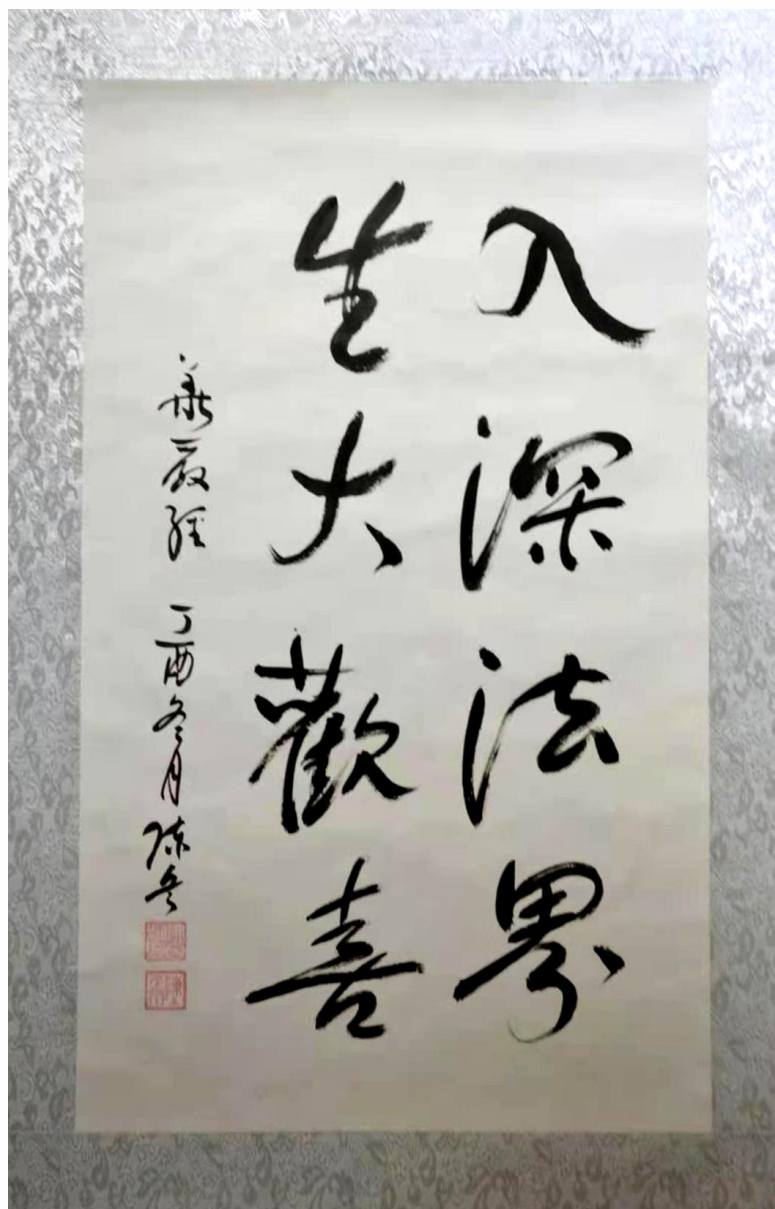 入深法界
生大歡喜
華嚴經 丁酉冬月 陳兵